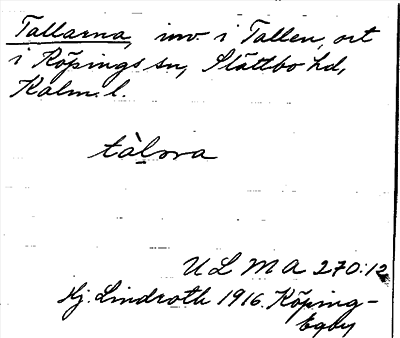 Tallarna, inv. i Tallen, ort
i Köpings sn, Slättbo hd,
Kalm. l.
tàl̠ɒra
ULMA 270:12
Hj. Lindroth 1916. Köping-
Egby